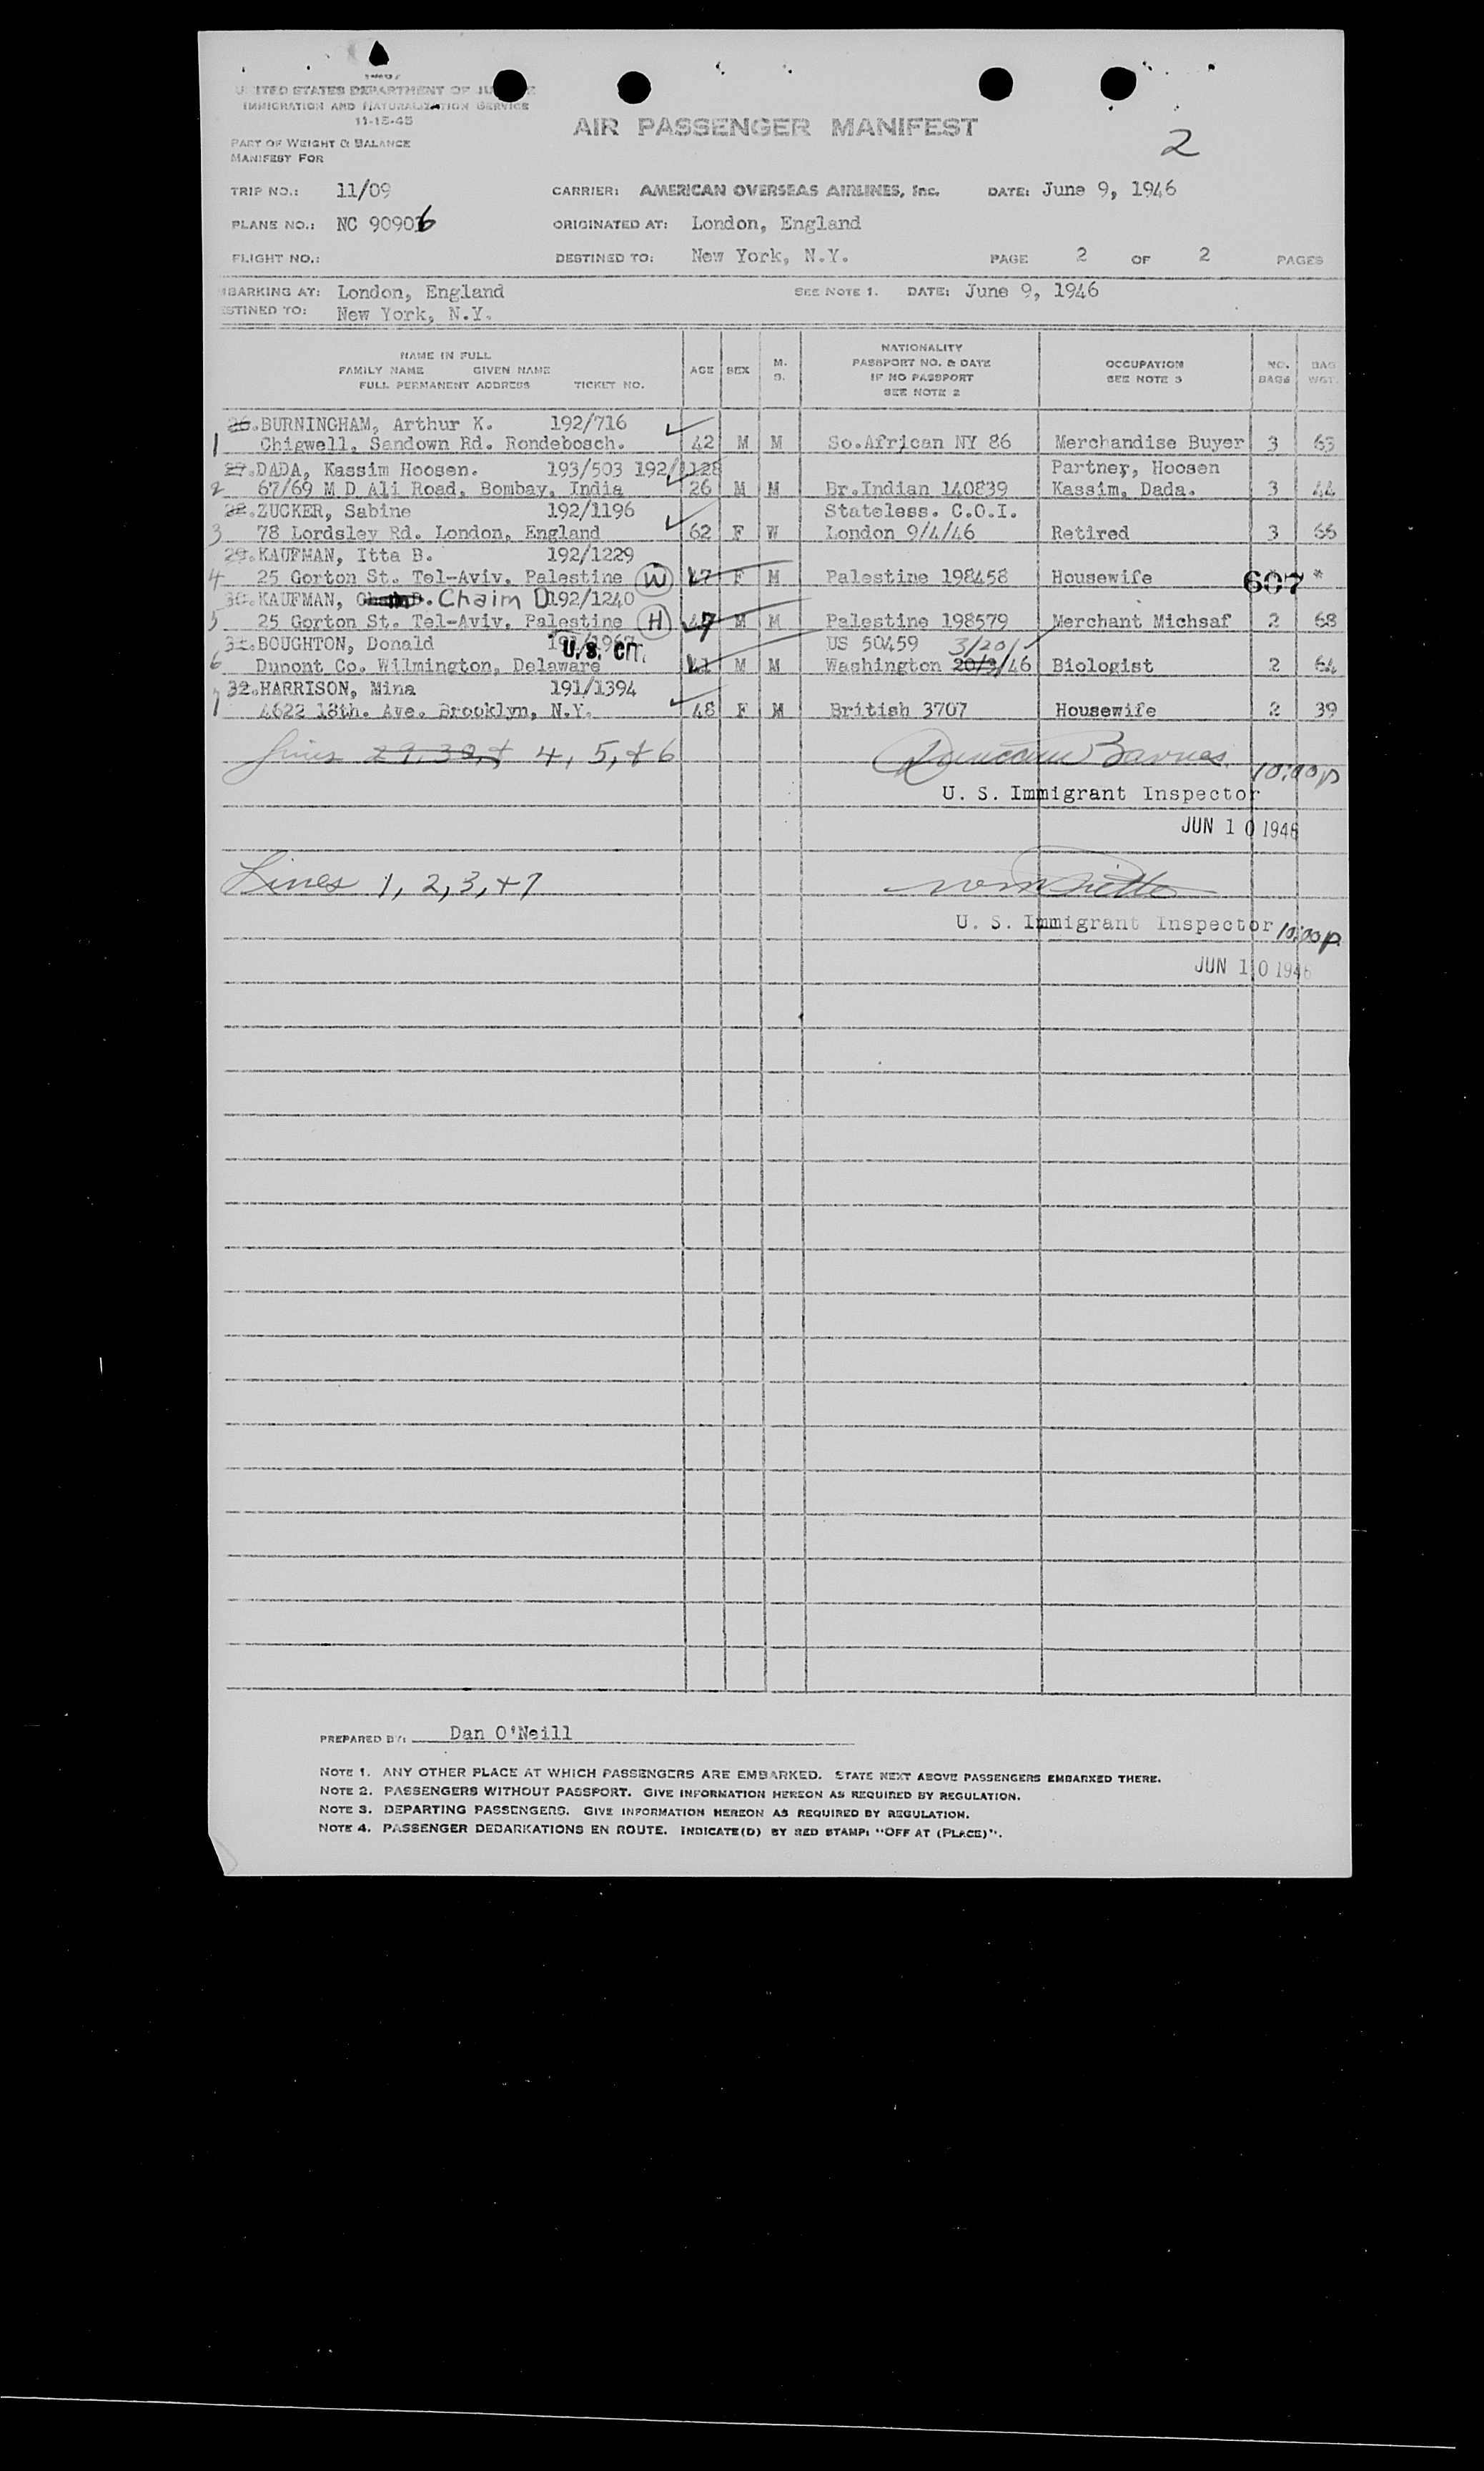 UNITED STATES DEPARTMENT OF JUSTICE
IMMIGRATION AND NATURALIZATION SERVICE
11-15-45
AIR PASSENGER MANIFEST
2
PART OF WEIGHT & BALANCE
MANIFEST FOR
TRIP NO.: 11/09 CARRIER: AMERICAN OVERSEAS AIRLINES, Inc. DATE: June 9, 1946
PLANE NO.: NC 90906 ORIGINATED AT: London, England
FLIGHT NO.: DESTINED TO: New York, N.Y. PAGE 2 OF 2 PAGES
MBARKING AT: London, England SEE NOTE 1. DATE: June 9, 1946
STINED TO: New York, N.Y.
NAME IN FULL
FAMILY NAME GIVEN NAME
FULL PERMANENT ADDRESS TICKET NO.
AGE SEX M. S.
NATIONALITY
PASSPORT NO. & DATE
IF NO PASSPORT
SEE NOTE 2
OCCUPATION
SEE NOTE 3
NO. BAGS
BAG WGT.
26. BURNINGHAM, Arthur K. 192/716
1 Chigwell, Sandown Rd. Rondebosch. 42 M M So.African NY 86 Merchandise Buyer 3 63
27. DADA, Kassim Hoosen. 193/503 192/1128 Partner, Hoosen
2 67/69 M D Ali Road, Bombay, India 26 M M Br.Indian 140839 Kassim, Dada. 3 44
28. ZUCKER, Sabine 192/1196 Stateless. C.O.I.
3 78 Lordsley Rd. London, England 62 F W London 9/4/46 Retired 3 66
29. KAUFMAN, Itta B. 192/1229
4 25 Gorton St. Tel-Aviv. Palestine W 47 F M Palestine 198458 Housewife 607 *
30. KAUFMAN, Chaim D 192/1240
5 25 Gorton St. Tel-Aviv. Palestine H 47 M M Palestine 198579 Merchant Michsaf 2 68
31. BOUGHTON, Donald U.S. cit. US 50459 3/20/
6 Dupont Co. Wilmington, Delaware 41 M M Washington 20/3/46 Biologist 2 64
32. HARRISON, Mina 191/1394
7 4622 18th. Ave. Brooklyn, N.Y. 48 F M British 3707 Housewife 2 39
Lines 29, 30, + 4, 5, + 6 Duncan Barnes 10:00p
U. S. Immigrant Inspector
JUN 10 1946
Lines 1, 2, 3, + 7
U. S. Immigrant Inspector 10:00p
JUN 10 1946
PREPARED BY: Dan O'Neill
NOTE 1. ANY OTHER PLACE AT WHICH PASSENGERS ARE EMBARKED. STATE NEXT ABOVE PASSENGERS EMBARKED THERE.
NOTE 2. PASSENGERS WITHOUT PASSPORT. GIVE INFORMATION HEREON AS REQUIRED BY REGULATION.
NOTE 3. DEPARTING PASSENGERS. GIVE INFORMATION HEREON AS REQUIRED BY REGULATION.
NOTE 4. PASSENGER DEBARKATIONS EN ROUTE. INDICATE(D) BY RED STAMP: "OFF AT (PLACE)".